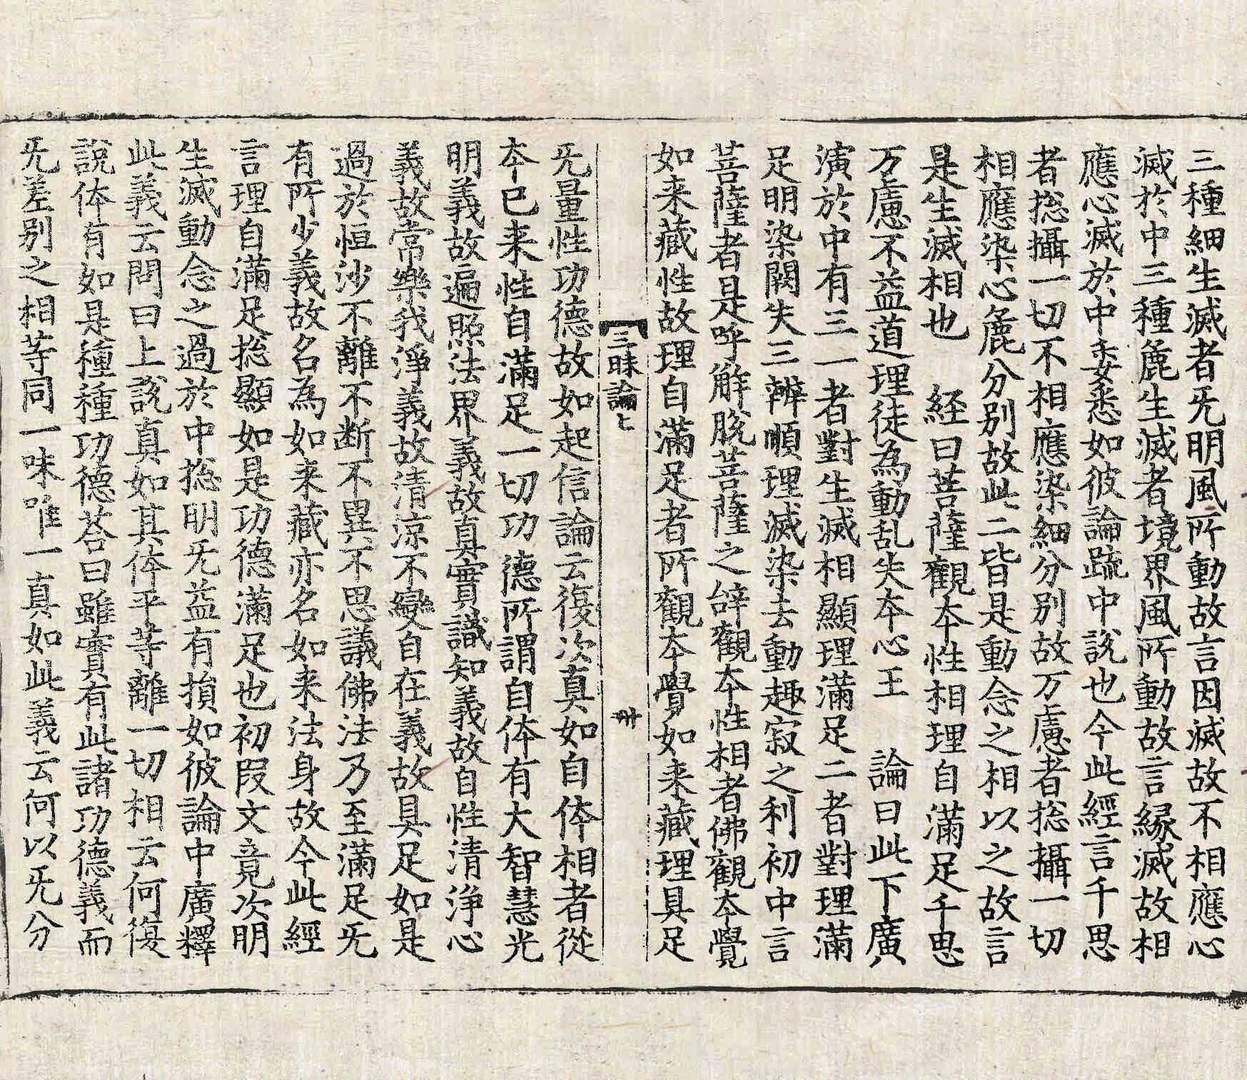 三種細生滅者旡明風所動故言因滅故不相應心
滅於中三種麁生滅者境界風所動故言緣滅故相
應心滅於中委悉如彼論疏中說也今此經言千思
者捴攝一切不相應染細分別故万慮者捴攝一切
相應染心麁分別故此二皆是動念之相以之故言
是生滅相也　經曰菩薩觀夲性相理自滿足千思
万慮不益道理徒為動乱失夲心王　論曰此下廣
演於中有三一者對生滅相顯理滿足二者對理滿
足明染闕失三辨順理滅染去動趣寂之利初中言
菩薩者是呼解脫菩薩之辞觀夲性相者佛觀夲覺
如来藏性故理自滿足者所觀夲覺如来藏理具足
三昧論上　卌
旡量性功德故如起信論云復次真如自体相者從
夲已来性自滿足一切功德所謂自体有大智慧光
明義故遍照法界義故真實識知義故自性清淨心
義故常樂我淨義故清涼不變自在義故具足如是
過於恒沙不離不断不異不思議佛法乃至滿足旡
有所少義故名為如来藏亦名如来法身故今此經
言理自滿足捴顯如是功德滿足也初段文竟次明
生滅動念之過於中捴明旡益有損如彼論中廣釋
此義云問曰上說真如其体平等離一切相云何復
說体有如是種種功德荅曰雖實有此諸功德義而
旡差別之相等同一味唯一真如此義云何以旡分